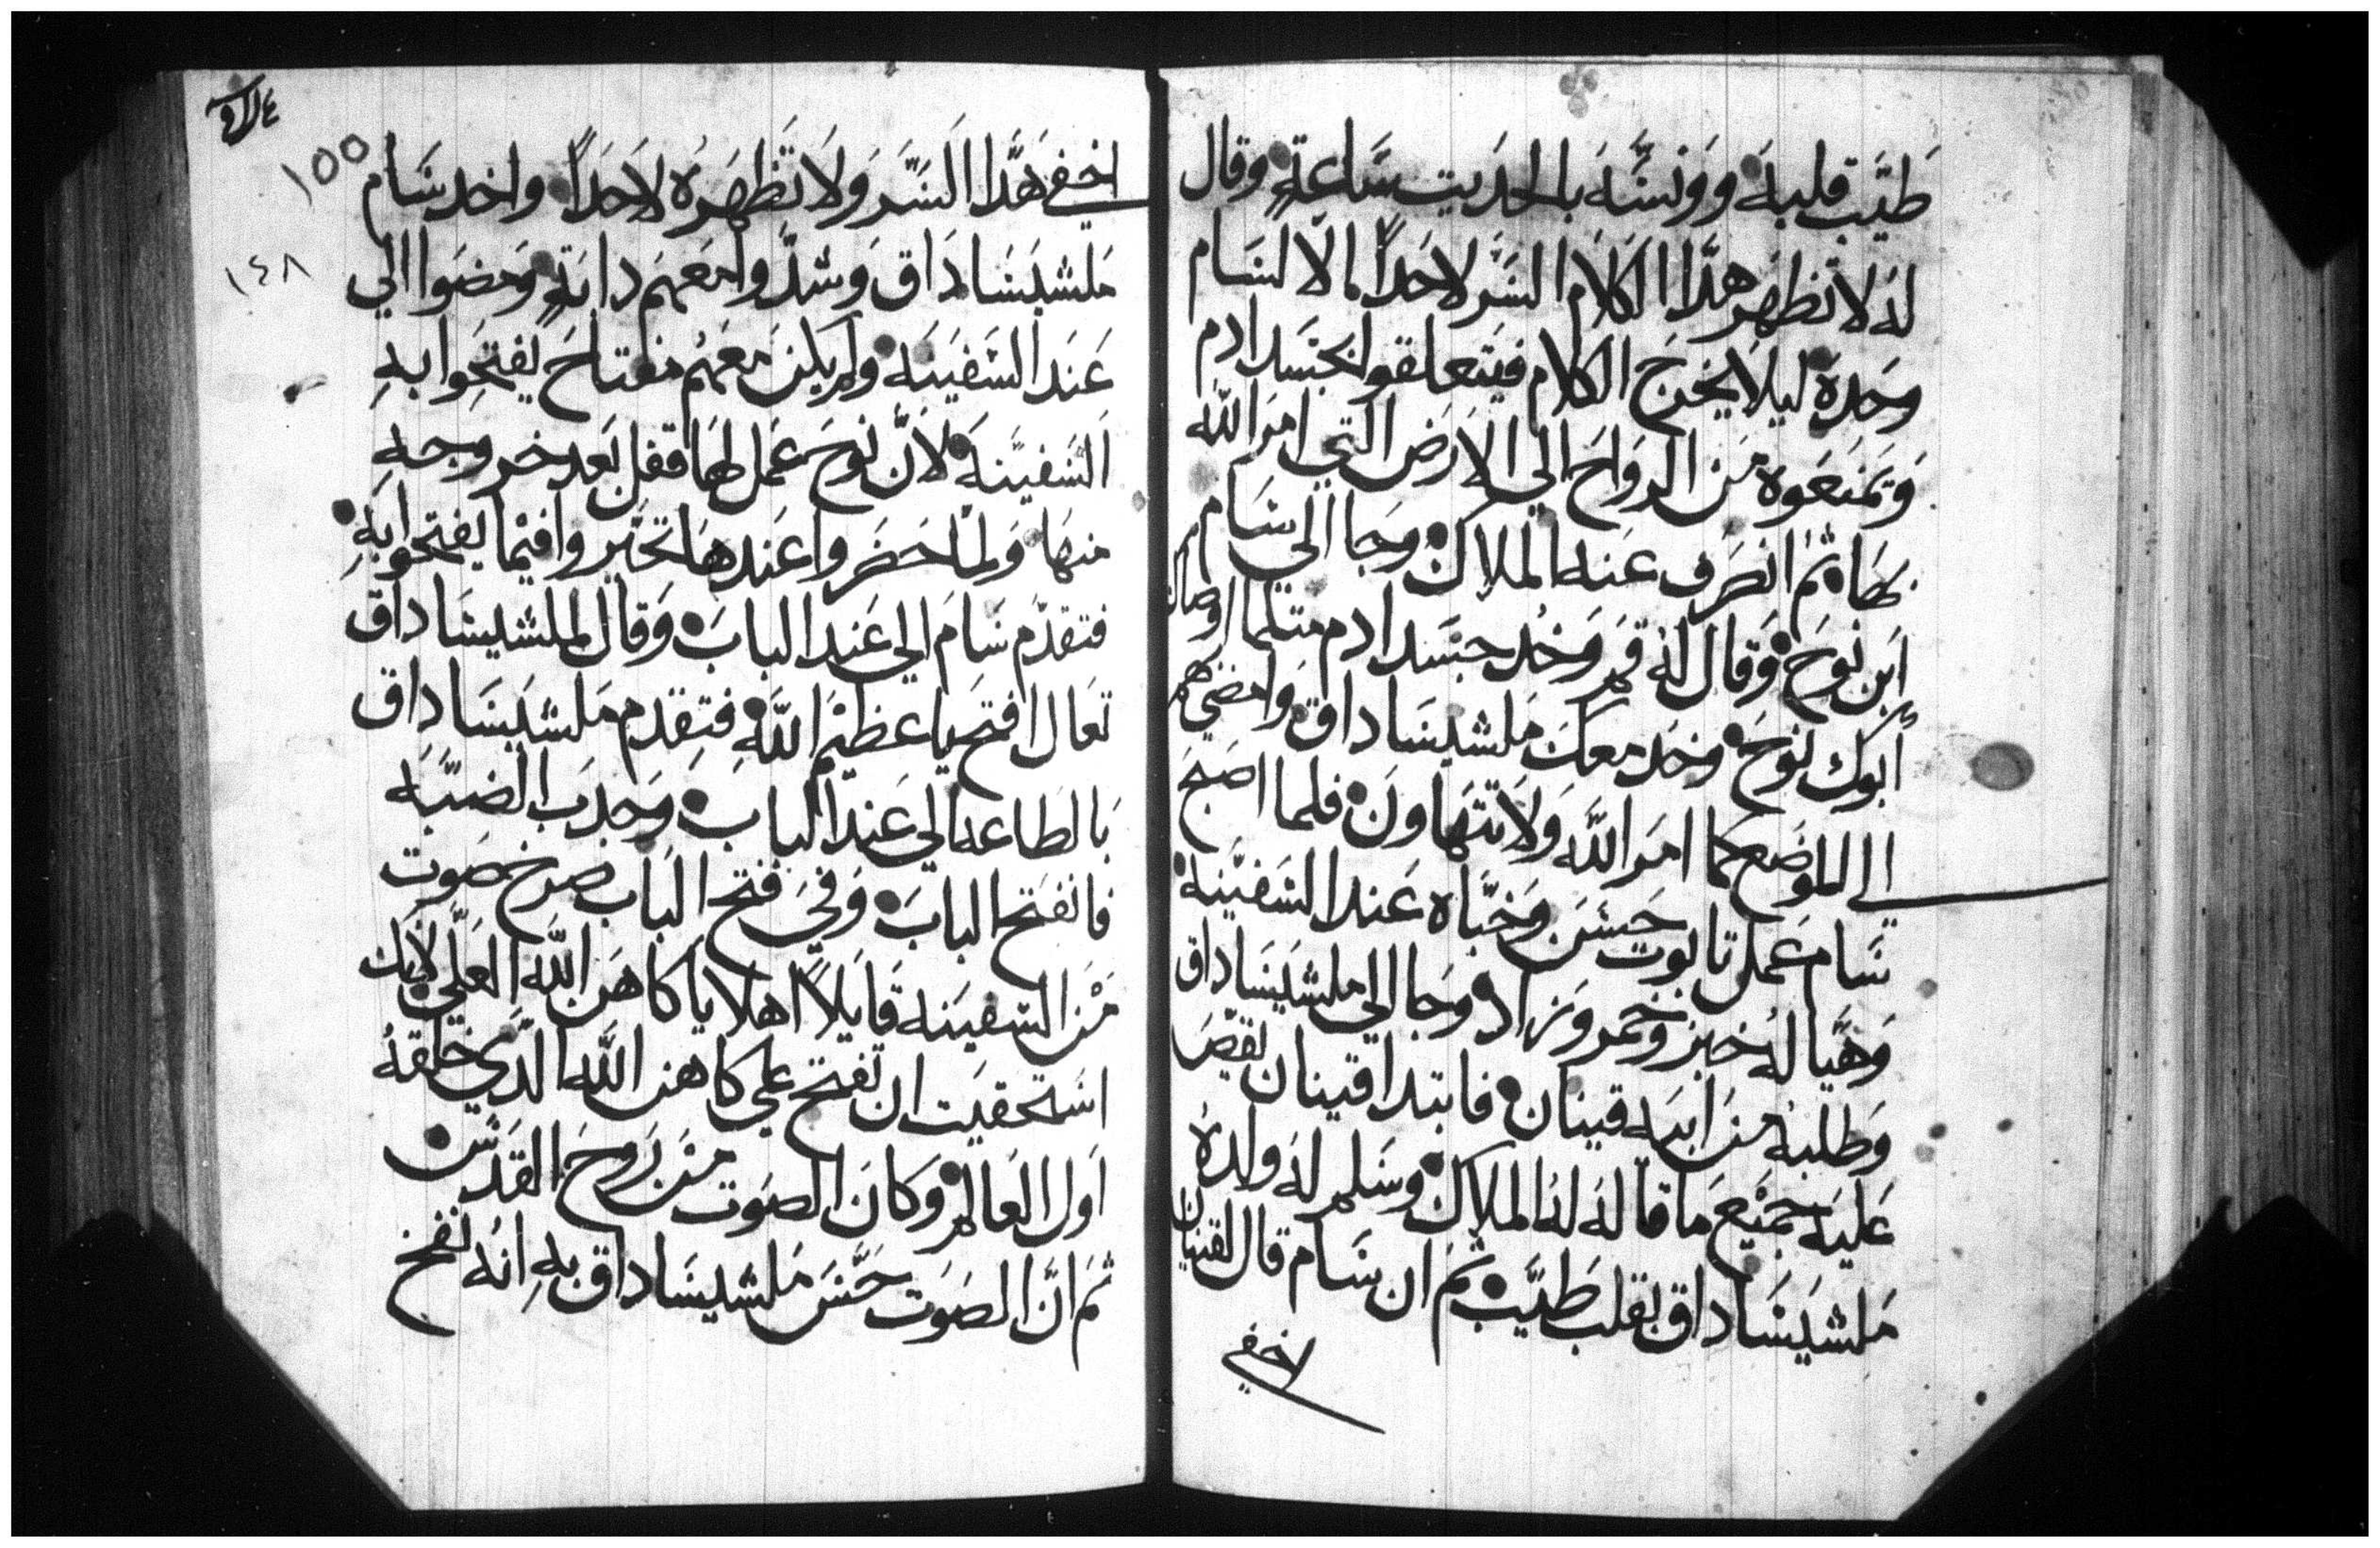 طيَّب قلبه وونسَّه بالحديت ساعةٍ وقال
له لا تظهر هدا الكلام السر لاحداً الا لسام
وحده ليلا يخرج الكلام فيتعلقوا بجسد ادم
وتمنعوه من الرواح الي الارض التي امر الله
بها ثم انصرف عنه الملاك وجا الي سام
ابن نوح وقال له قم وخد جسد ادم متلما اوصاك
ابوك نوح وخد معك ملشيساداق وامضي بهم
الي الموضع كما امر الله ولا تتهاون فلما اصبح
سام عمل تابوت حسن وخباه عند السفينة
وهيا له خبز وخمر وزاد وجا الي ملشيساداق
وطلبه من ابيه قينان فابتدا قينان يقص
عليه جميع ما قاله له الملاك وسلم له ولده
ملشيساداق بقلب طيب ثم ان سام قال لقينان
لاخفي
١٥٥
١٤٨
اخفي هدا السر ولا تظهره لاحداً واخد سام
ملشيساداق وشدوا معهم دابةٍ ومضوا الي
عند السفينه ولم يكن معهم مفتاح يفتحوا به
السفينه لان نوح عمل لها قفل بعد خروجه
منها ولما حضروا عندها تحيروا فيما يفتحوا به
فتقدم سام الي عند الباب وقال لملشيساداق
تعال افتح يا عظيم الله فتقدم ملشيساداق
بالطاعه الي عند الباب وجدب الضبّه
فانفتح الباب وفي فتح الباب صرخ صوت
من السفينه قايلاً اهلا يا كاهن الله العلي لانك
استحقيت ان تفتح علي كاهن الله الدي خلقه
اول العالم وكان الصوت من روح القدس
ثم ان الصوت حسَّ ملشيساداق به انه نفخ